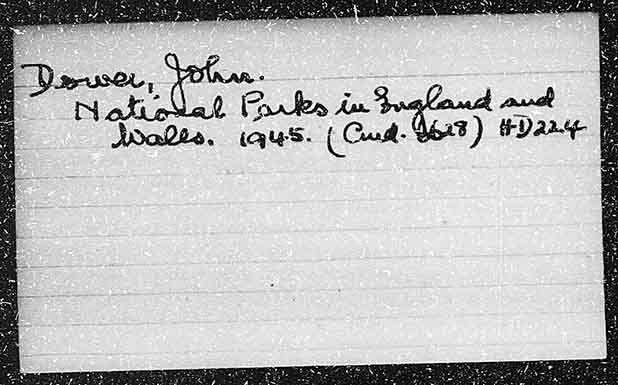 Dower, John.
National Parks in England and
Wales. 1945. (Cmd. 6628) HD224